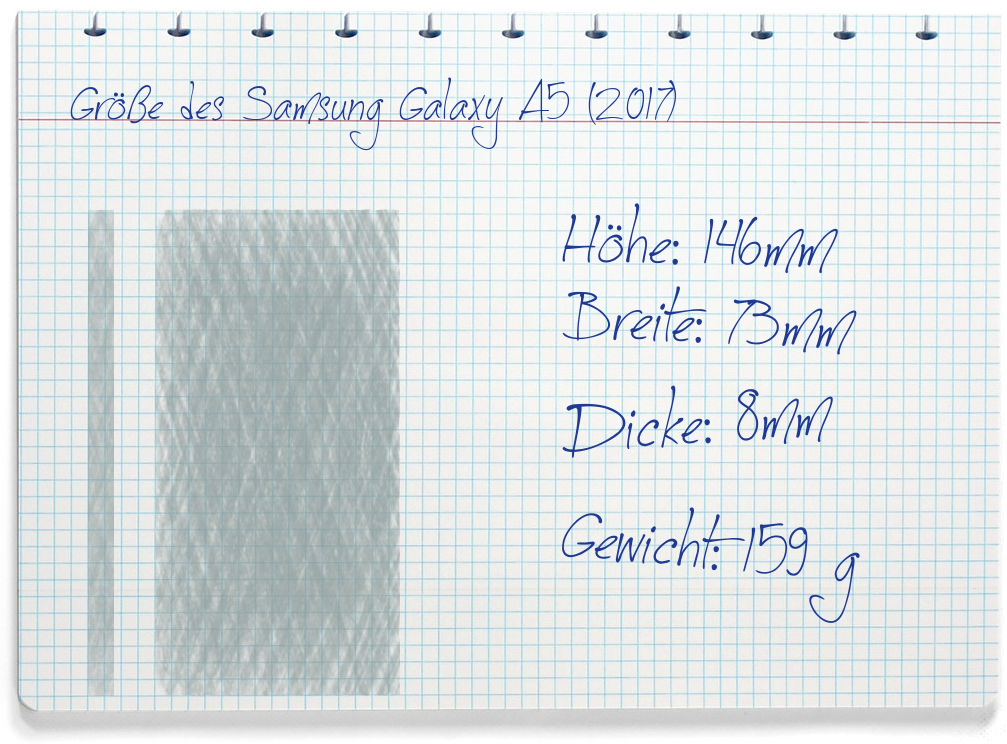 Größe des Samsung Galaxy A5 (2017)
Höhe: 146mm
Breite: 73mm
Dicke: 8mm
Gewicht: 159 g